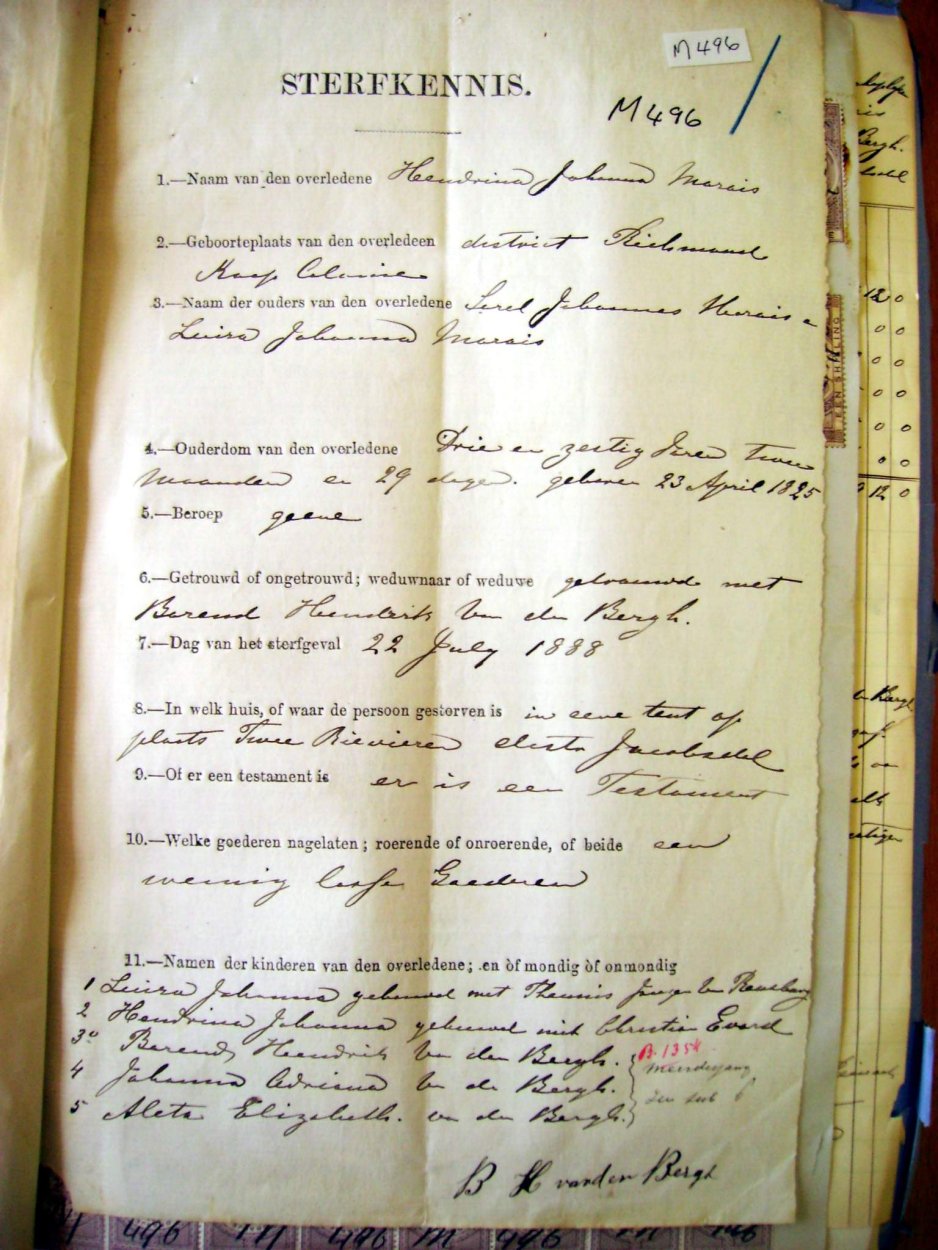 M 496
STERFKENNIS.
M 496
1.—Naam van den overledene Hendrina Johanna Marais
2.—Geboorteplaats van den overledeen district Richmond
Kaap Colonie
3.—Naam der ouders van den overledene Sarel Johannes Marais en
Louisa Johanna Marais
4.—Ouderdom van den overledene Drie en zestig Jaren twee
Maanden en 29 dagen. geboren 23 April 1825
5.—Beroep geene
6.—Getrouwd of ongetrouwd; weduwnaar of weduwe getrouwd met
Barend Hendrik Van den Bergh.
7.—Dag van het sterfgeval 22 July 1888
8.—In welk huis, of waar de persoon gestorven is in eene tent op
plaats Twee Rievieren distr Jacobsdal
9.—Of er een testament is er is een Testament
10.—Welke goederen nagelaten; roerende of onroerende, of beide een
weinig losse Goederen
11.—Namen der kinderen van den overledene; en òf mondig òf onmondig
1 Johanna gehuwd met Theunis van Rensburg
2 Hendrina Johanna gehuwd met Christian Evard
3º Barend Hendrik Van den Bergh.
B. 1354
4 Johanna Adriana V. d. Bergh.
5 Aleta Elizabeth. v. den Bergh.
B H vanden Bergh
EEN SHILLING
12 0
0 0
0 0
0 0
0 0
0
12 0
496 M 496 M 496